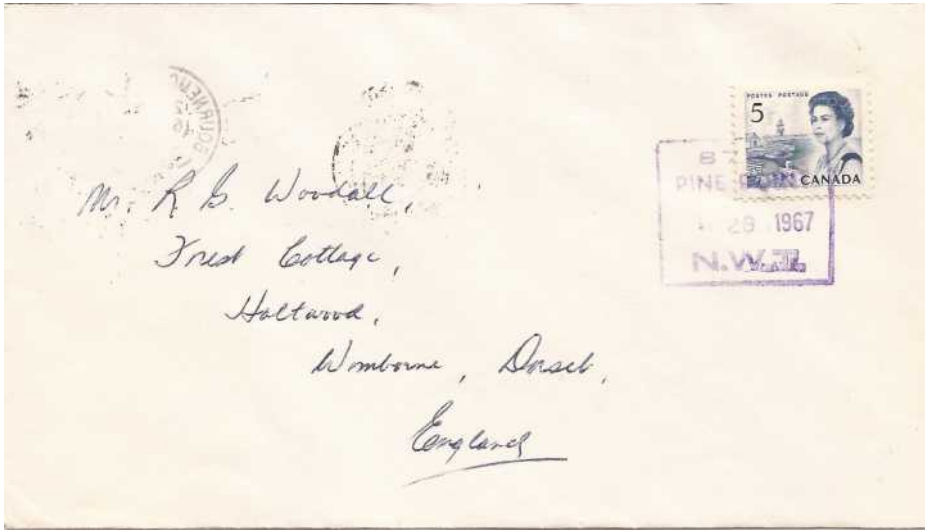 POSTES POSTAGE
5
CANADA
PINE POIN
28 1967
N.W.T.
Mr. R G. Woodall,
Forest Cottage,
Holtwood,
Wimborne, Dorset,
England